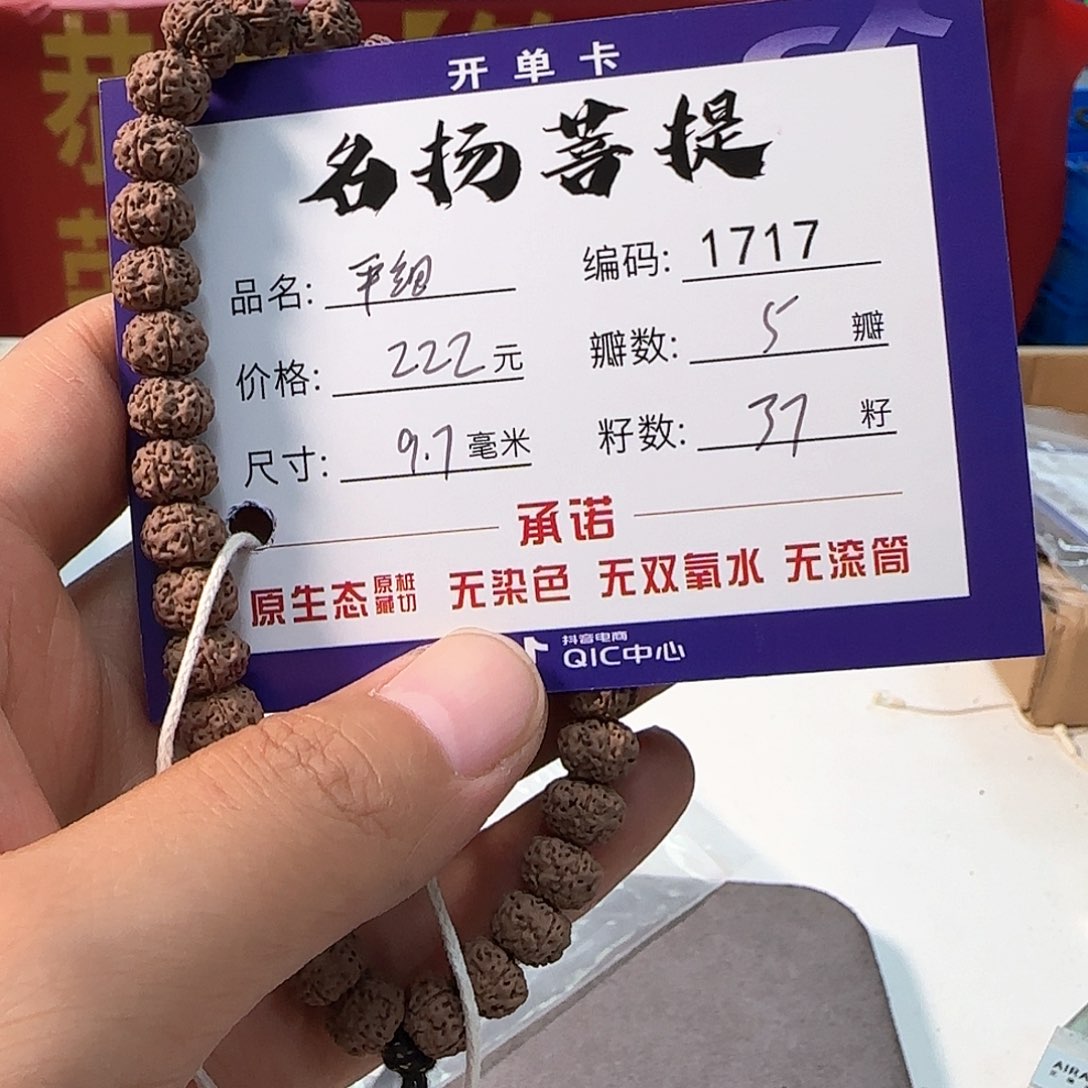 开单卡
名扬菩提
品名: 平纹 编码: 1717
价格: 222 元 瓣数: 5 瓣
尺寸: 9.7 毫米 籽数: 37 籽
承诺
原生态 原桩藏切 无染色 无双氧水 无滚筒
抖音电商
QIC中心
AIRA